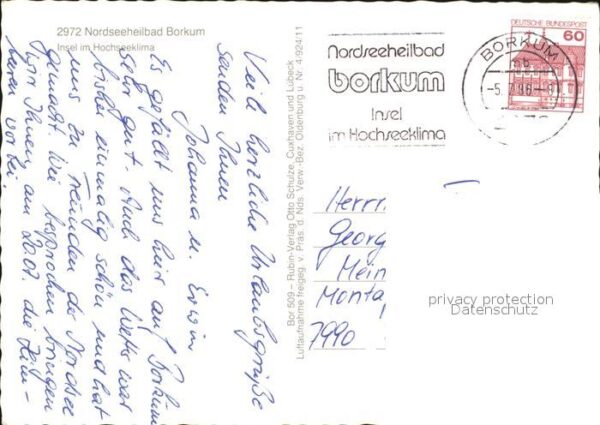 2972 Nordseeheilbad Borkum
Insel im Hochseeklima
Viele herzliche Urlaubsgrüße
senden Ihnen
Johanna u. Erwin
Es gefällt uns hier auf Borkum
sehr gut. Auch das Wetter war
bisher einmalig schön und hat
uns zu Freunden der Nordsee
gemacht. Wie besprochen bringen
wir Ihnen am die Heim-
vorbei.
Bor 509 – Rubin-Verlag Otto Schulze, Cuxhaven und Lübeck
Luftaufnahme freigeg. v. Präs. d. Nds. Verw.-Bez. Oldenburg u. Nr. 4/924/11
Nordseeheilbad
borkum
Insel
im Hochseeklima
BORKUM
-5.7.86-8
DEUTSCHE BUNDESPOST
60
Herrn
Georg
Mein
Monta
7990
privacy protection
Datenschutz